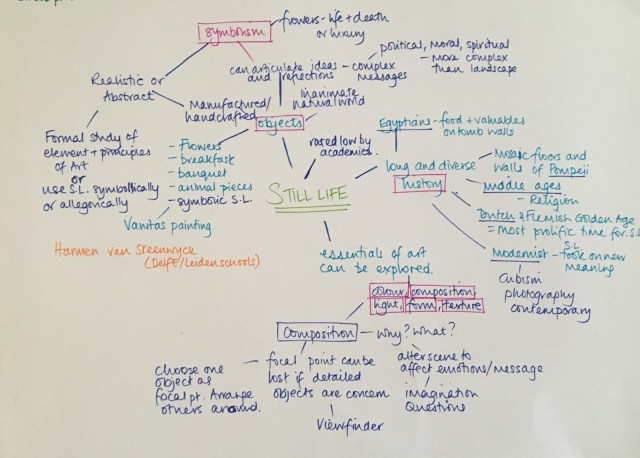 flowers - life + death
or luxury
symbolism
can articulate ideas
and reflections
- complex
messages
political, moral, spiritual
- more complex
than landscape
Realistic or
Abstract
Manufactured/
handcrafted
inanimate
natural world
objects
Formal study of
element + principles
of Art
or
use S.L. symbolically
or allegorically
- Flowers
- breakfast
- banquet
- animal pieces
- symbolic S.L.
Vanitas painting
Harmen van Steenwyck
(Delft/Leiden schools)
rated low by
academics.
STILL LIFE
Egyptians - food + valuables
on tomb walls
long and diverse
history
Mosaic floors and
walls of Pompeii
Middle ages
- Religion
Dutch & Flemish Golden Age
= most prolific time for S.L
Modernist - S.L. took on new
meaning
Cubism
photography
contemporary
essentials of art
can be explored.
colour, composition,
light, form, texture
Composition
why? what?
choose one
object as
focal pt. Arrange
others around.
focal point can be
lost if detailed
objects are concern
Viewfinder
alter scene to
affect emotions/message
imagination
Questions